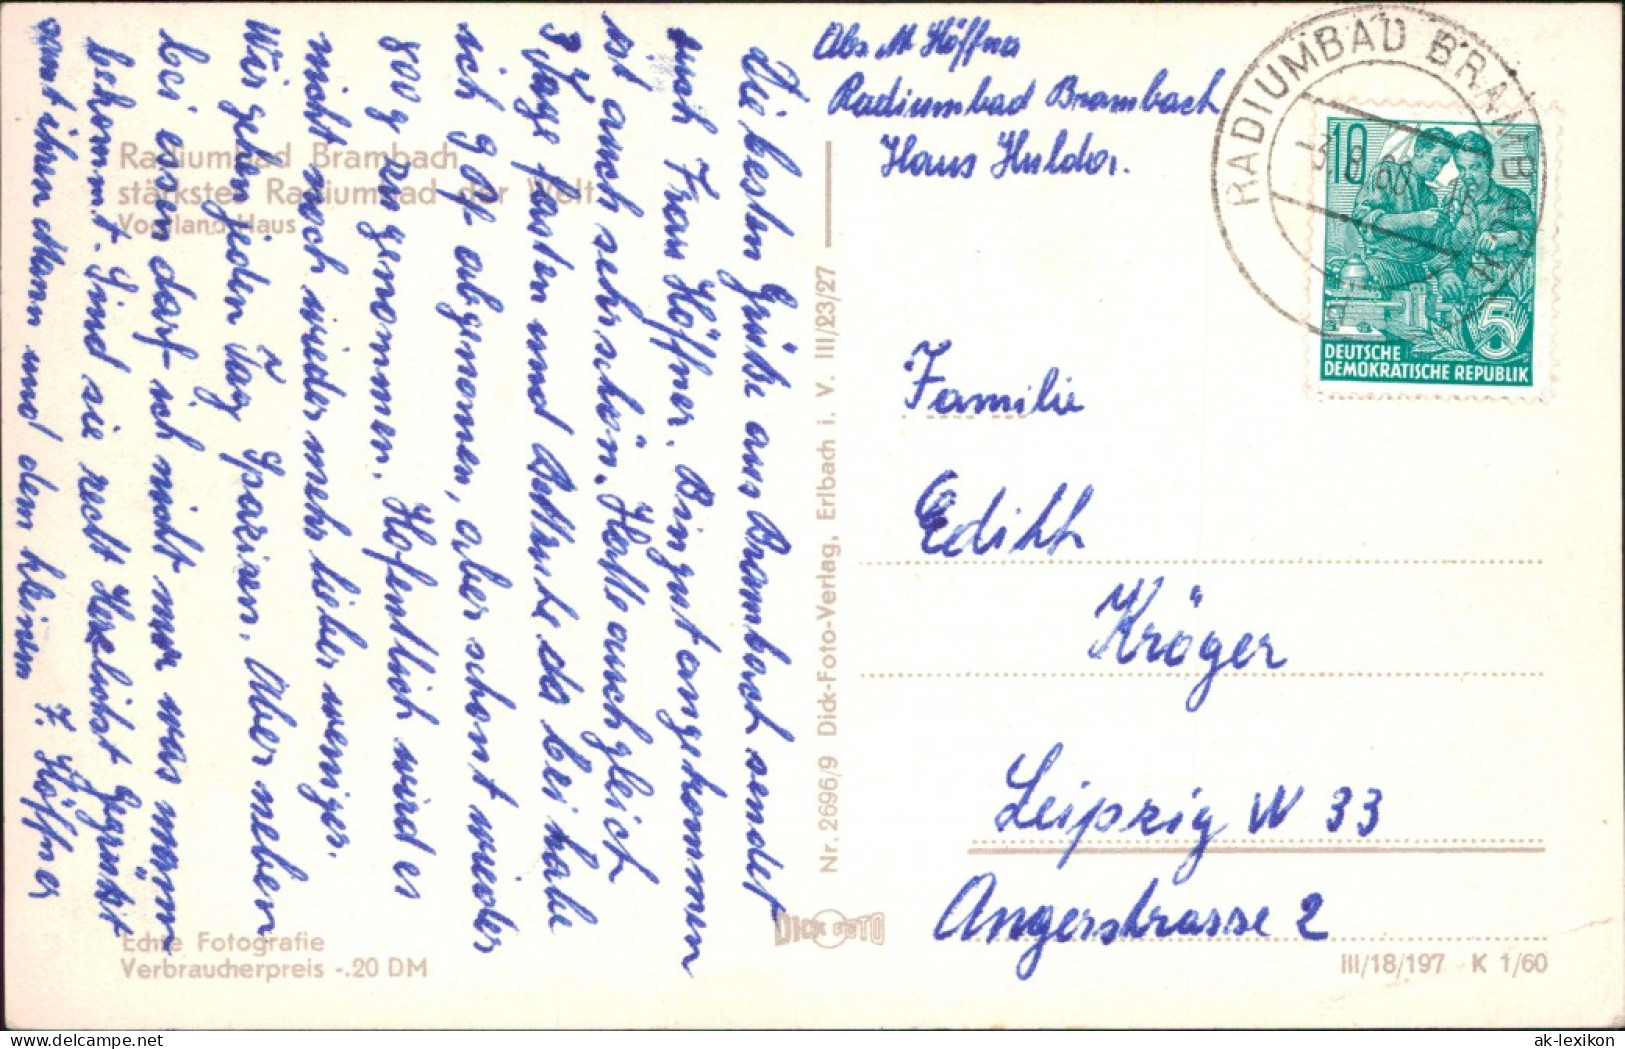 Radiumbad Brambach
stärkstes Radiumbad der Welt
Vogtland-Haus
Die besten Grüße aus Brambach sendet
euch Frau Höffner. Bin gut angekommen
ist auch sehr schön. Hatte auch gleich
3 Tage fasten und Bettruhe da bei habe
ich 9 Pf abgenomen, aber schont wieder
800 g zu genommen. Hofentlich wird es
nicht noch wieder mehr lieber weniger.
Wir gehen jeden Tag Spaziren. Aber neben
bei essen darf ich nicht nur was mann
bekommt. Sind sie recht Herzlichst gegrüßt
samt ihren Mann und dem kleinen F. Höffner
Echte Fotografie
Verbraucherpreis -.20 DM
Nr. 2696/9 Dick-Foto-Verlag, Erlbach i. V. III/23/27
DICK FOTO
Abs. M. Höffner
Radiumbad Brambach
Haus Hulda.
RADIUMBAD BRAMBACH
-3.8.60
10
5
DEUTSCHE
DEMOKRATISCHE REPUBLIK
Familie
Edith
Kröger
Leipzig W 33
Angerstrasse 2
III/18/197 K 1/60
www.delcampe.net
ak-lexikon